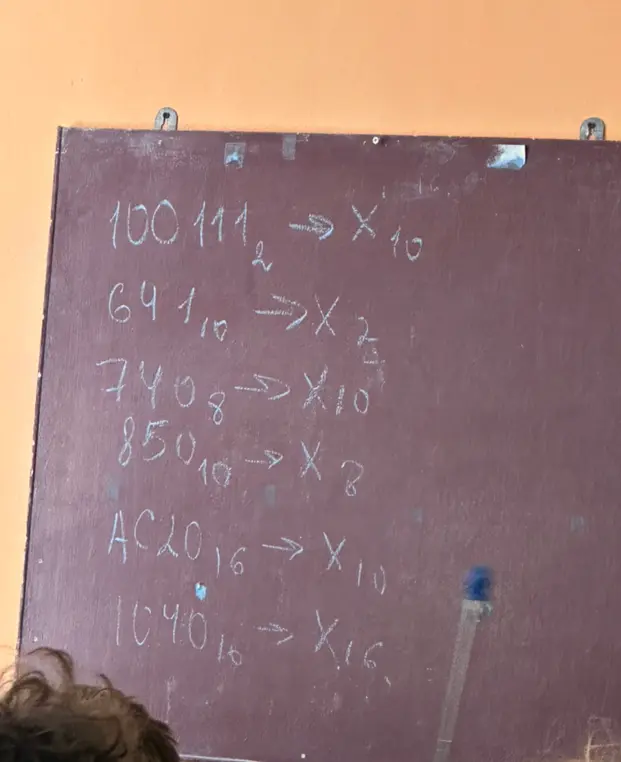 100111₂ → X₁₀
641₁₀ → X₂
740₈ → X₁₀
850₁₀ → X₈
AC20₁₆ → X₁₀
1040₁₀ → X₁₆